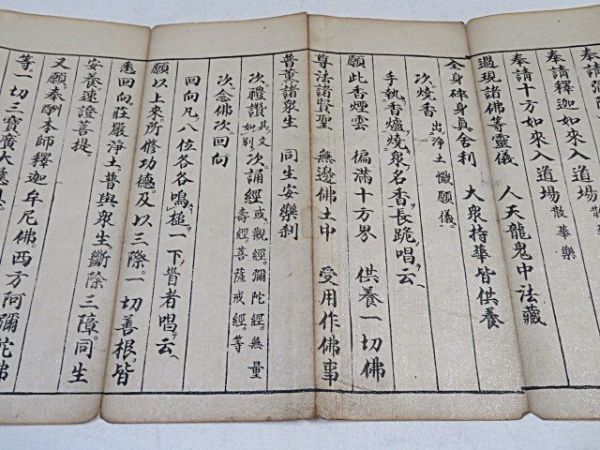 奉請彌陀如來入道場 散華樂
奉請釋迦如來入道場 散華樂
奉請十方如來入道場
過現諸佛等靈儀 人天龍鬼中法藏
全身碎身眞舍利 大衆持華皆供養
次燒香 出淨土懺願儀
手執香爐燒衆名香長跪唱云
願此香煙雲 徧滿十方界 供養一切佛
尊法諸賢聖 無邊佛土中 受用作佛事
普薰諸衆生 同生安樂刹
次禮讃 其文如別 次誦經 或觀經彌陀經無量壽經菩薩戒經等
次念佛次回向
回向凡八位各各鳴槌一下貲者唱云
願以上來所修功德及以三際一切善根皆
悉回向莊嚴淨土普與衆生斷除三障同生
安養速證菩提
又願奉酬本師釋迦牟尼佛西方阿彌陀佛
等一切三寶廣大慈恩